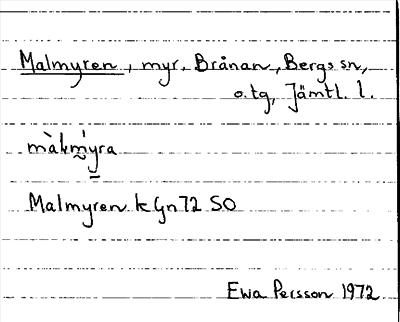 Malmyren, myr, Brånan, Bergs sn,
o. tg, Jämtl. l.
màlmýra
Malmyren k Gn 72 SO
Ewa Persson 1972